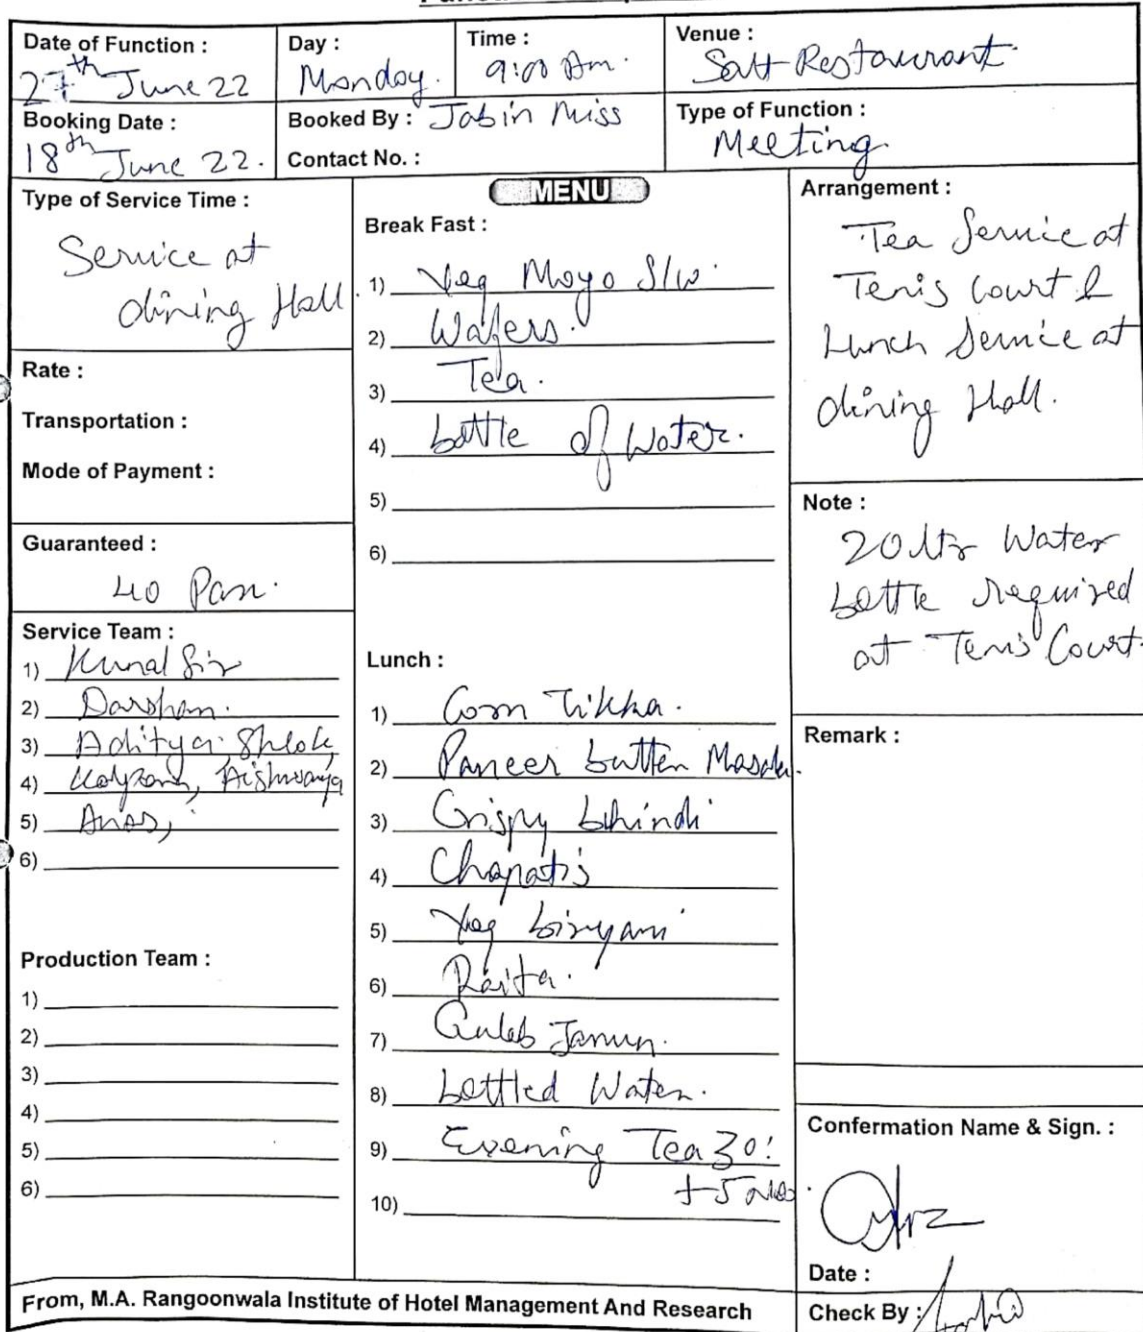 Date of Function :
27th June 22
Day :
Monday.
Time :
9:00 Am.
Venue :
Salt Restaurant
Booking Date :
18th June 22.
Booked By : Jabin Miss
Contact No. :
Type of Function :
Meeting
Type of Service Time :
Service at
dining Hall
Rate :
Transportation :
Mode of Payment :
Guaranteed :
40 Pax.
Service Team :
1) Kunal Sir
2) Darshan.
3) Aditya, Shlok,
4) Kalyani, Aishwarya
5) Anas,
6)
Production Team :
1)
2)
3)
4)
5)
6)
MENU
Break Fast :
1) Veg Mayo S/w.
2) Wafers.
3) Tea.
4) bottle of Water.
5)
6)
Lunch :
1) Corn Tikka.
2) Paneer butter Masala.
3) Crispy bhindi
4) Chapatis
5) Veg biryani
6) Raita.
7) Gulab Jamun.
8) bottled Water.
9) Evening Tea 30!
+5
10)
Arrangement :
Tea Service at
Tenis Court &
Lunch Service at
dining Hall.
Note :
20 ltr Water
bottle required
at Tenis Court.
Remark :
Confermation Name & Sign. :
Date :
Check By :
From, M.A. Rangoonwala Institute of Hotel Management And Research